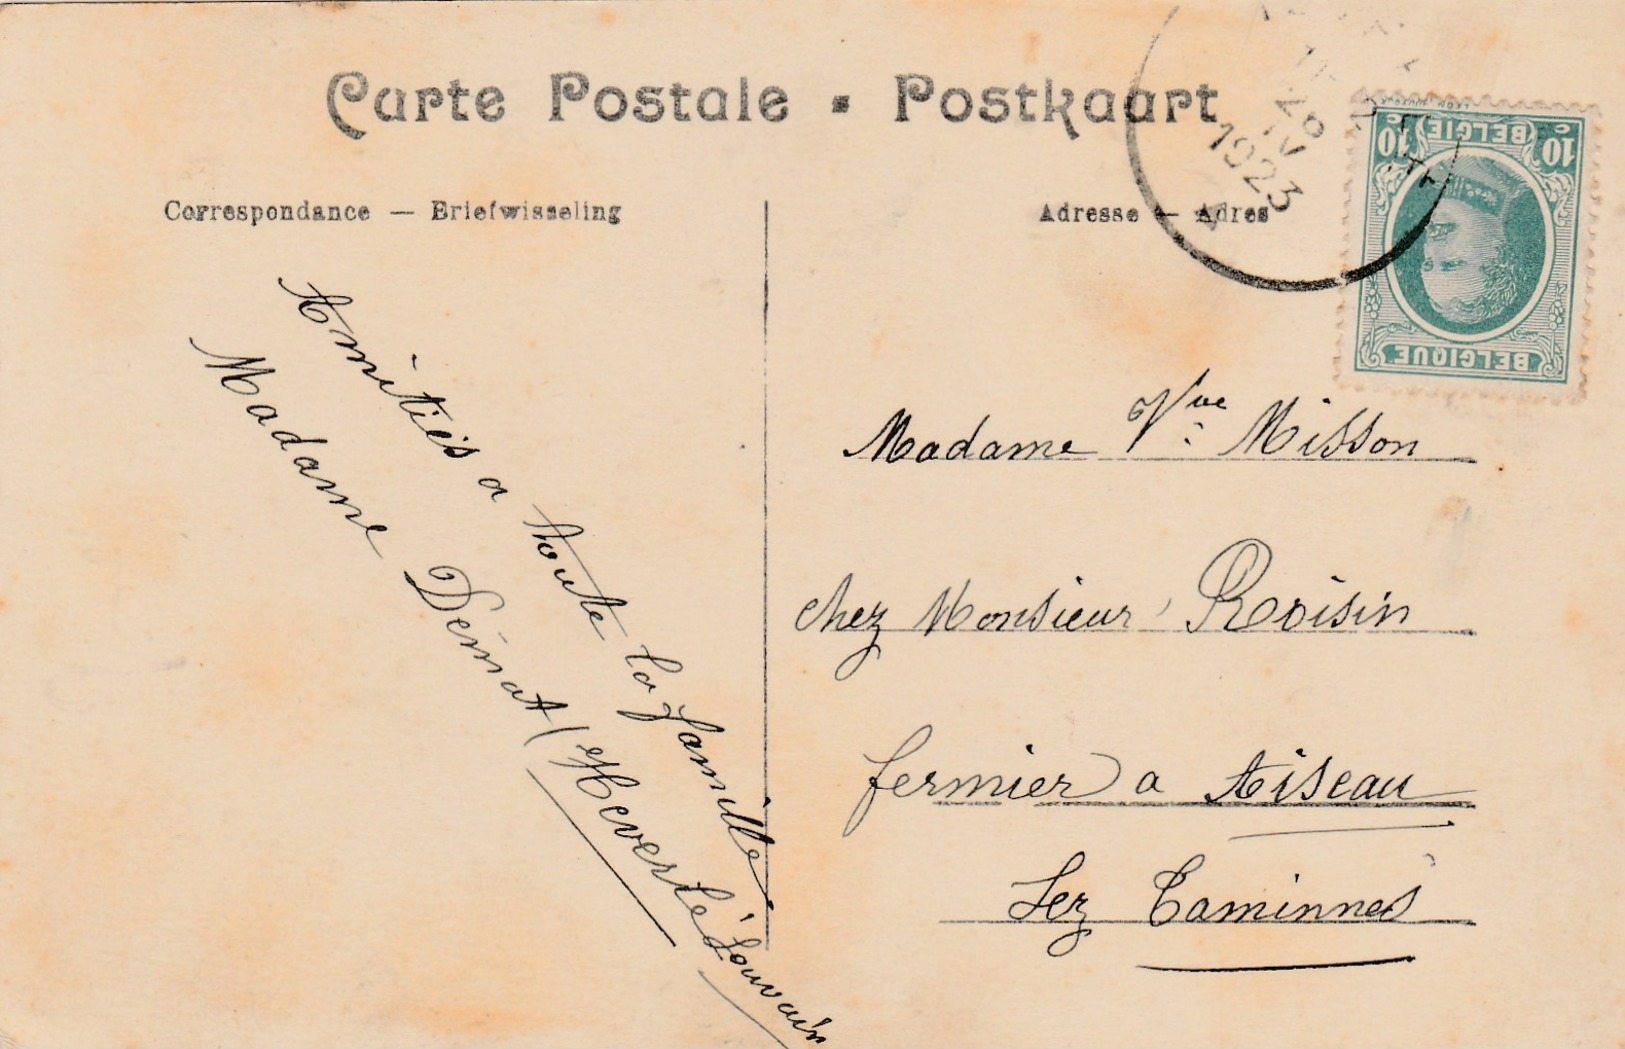 Carte Postale - Postkaart
Correspondance — Briefwisseling
Adresse — Adres
26
IV
1923
10 c BELGIË 10 c
BELGIQUE
Amitiés a toute la famille
Madame Démat (Heverlé Louvain
Madame Vve Misson
chez Monsieur Roisin
fermier a Aiseau
Lez Taminnes